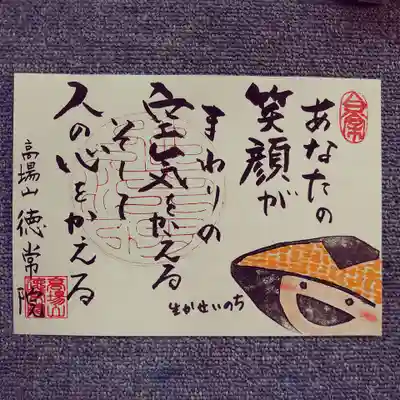 あなたの
笑顔が
まわりの
空気をかえる
そして
人の心をかえる
高場山 徳常院
生かせいのち